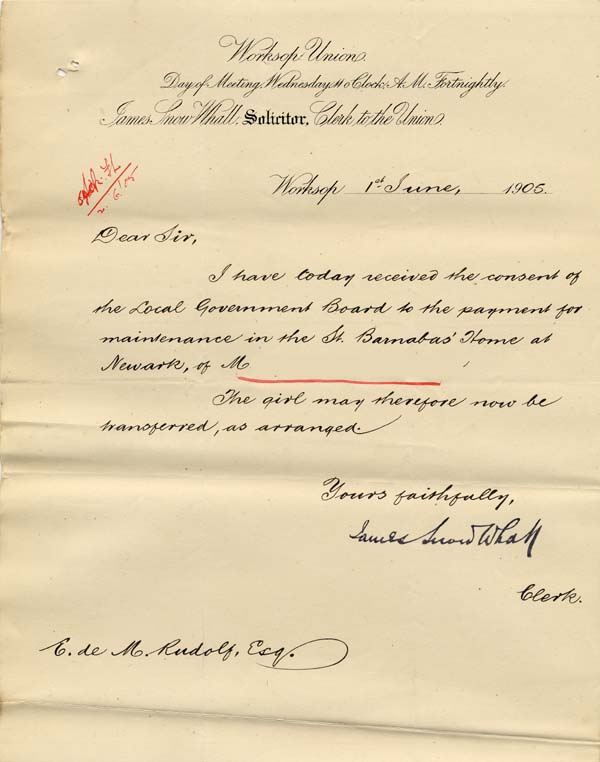 Worksop Union.
Day of Meeting, Wednesday 11 o'Clock, A.M. Fortnightly.
James Snow Whall, Solicitor, Clerk to the Union.
Worksop 1st June, 1905.
2.6.05
Dear Sir,
I have today received the consent of
the Local Government Board to the payment for
maintenance in the St. Barnabas' Home at
Newark, of M
The girl may therefore now be
transferred, as arranged.
Yours faithfully,
James Snow Whall
Clerk.
E. de M. Rudolf, Esq.